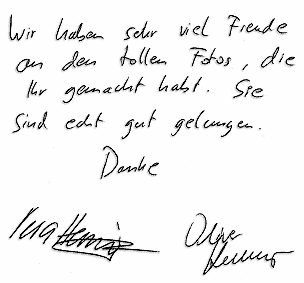 Wir haben sehr viel Freude
an den tollen Fotos, die
Ihr gemacht habt. Sie
sind echt gut gelungen.
Danke
Oliver